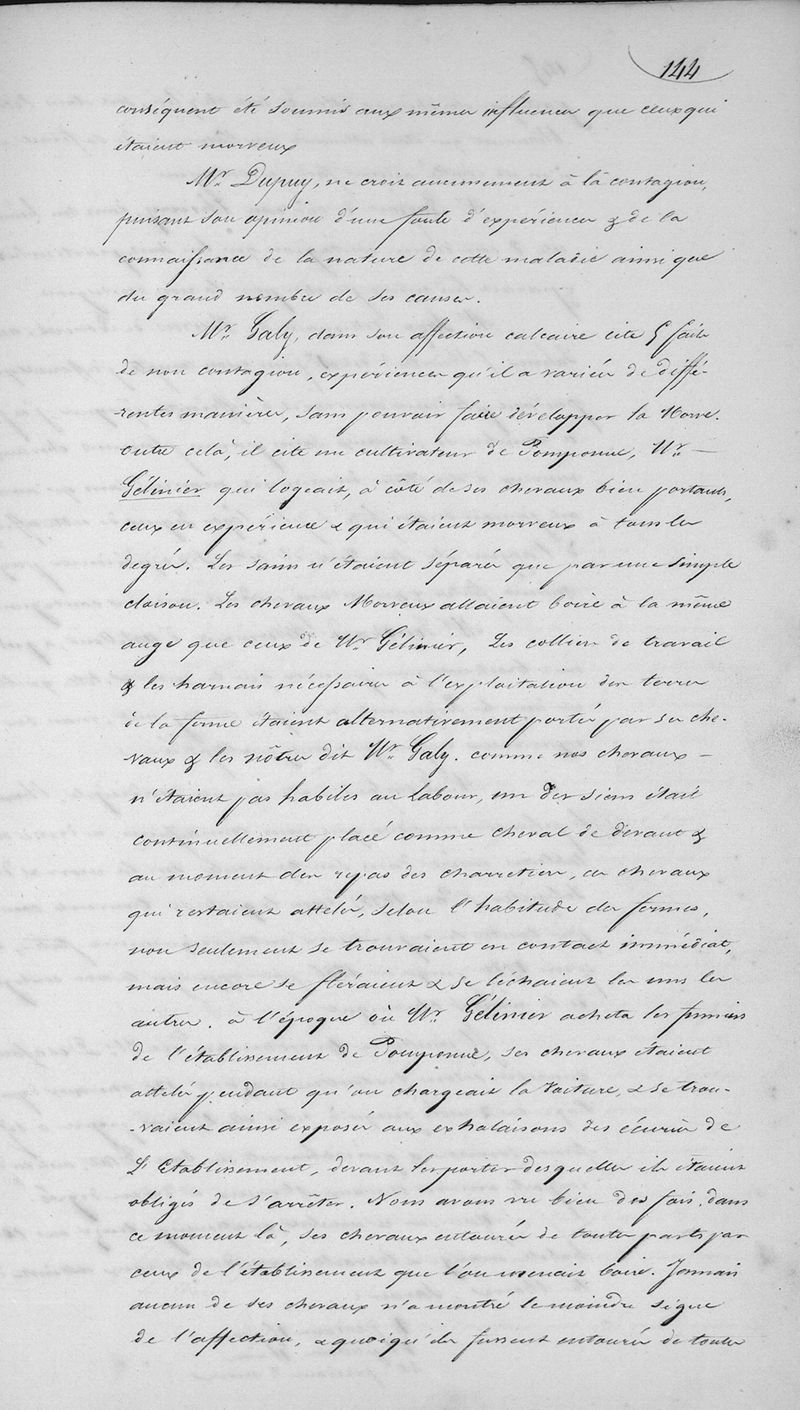 144
conséquent été soumis aux mêmes influences que ceux qui
étaient morveux
Mr. Dupuy, ne croit aucunement à la contagion,
puisant son opinion d'une foule d'expériences & de la
connaissance de la nature de cette maladie ainsi que
du grand nombre de ses causes.
Mr. Galy, dans son affection calcaire cite 5 faits
de non contagion, expériences qu'il a variées de diffé-
rentes manières, sans pouvoir faire développer la Morve.
outre celà, il cite un cultivateur de Pomponne, Mr. —
Gélinier qui logeait, à côté de ses chevaux bien portants,
ceux en expérience & qui étaient morveux à tous les
degrés. Les sains n'étaient séparés que par une simple
cloison. Les chevaux Morveux allaient boire à la même
auge que ceux de Mr. Gélinier, Les colliers de travail
& les harnais nécessaires à l'exploitation des terres
de la ferme étaient alternativement portés par ses che-
vaux & les nôtres dit Mr. Galy. comme nos chevaux —
n'étaient pas habiles au labour, un des siens était
continuellement placé comme cheval de devant &
au moment des repas des charretiers, ces chevaux
qui restaient attelés, selon l'habitude des fermes,
non seulement se trouvaient en contact immédiat,
mais encore se fléraient & se léchaient les uns les
autres. à l'époque où Mr. Gélinier acheta les fumiers
de l'établissement de Pomponne, ses chevaux étaient
attelés pendant qu'on chargeait la voiture, & se trou-
-vaient ainsi exposés aux exhalaisons des écuries de
L'Etablissement, devant les portes desquelles ils étaient
obligés de s'arrêter. Nous avons vu bien des fois, dans
ce moment là, ses chevaux entourés de toutes parts par
ceux de l'établissement que l'on menait boire. Jamais
aucun de ses chevaux n'a montré le moindre signe
de l'affection, & quoiqu'ils fussent entourés de toutes